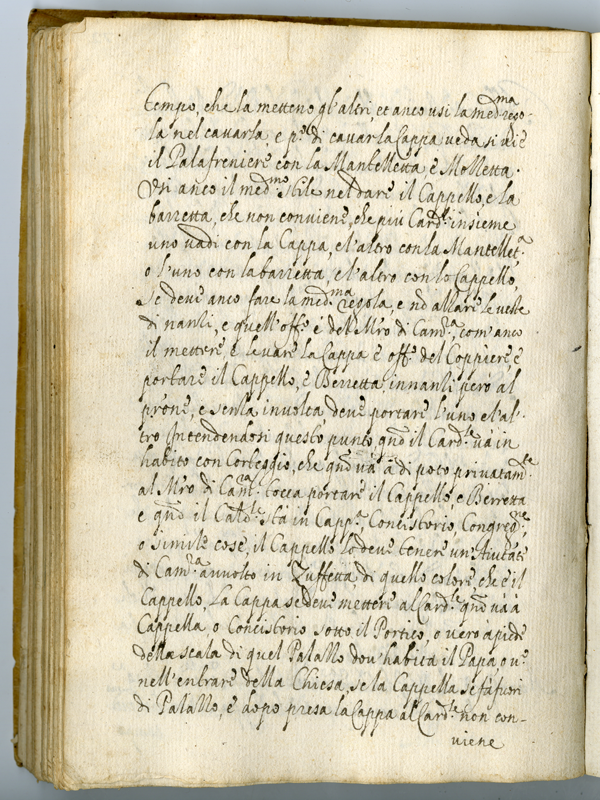 tempo, che la metteno gl'altri, et anco usi la med.ma rego-
la nel cavarla, e p.a di cavar la Cappa veda si vi è
il Palafreniere con la Mantelletta e Mozzetta.
Usi anco il med.mo stile nel dare il Cappello, e la
barretta, che non conviene, che più Card.li insieme
uno vadi con la Cappa, e l'altro con la Mantellet.a
o l'uno con la barretta, e l'altro con lo Cappello,
se deve anco fare la med.ma regola, e nò alzare le veste
di nanzi, e quell'off.o è del Mro di Cam.a, com'anco
il mettere, e levare la Cappa è off.o del Coppiere, e
portare il Cappello, e Berretta innanzi però al
prone, e senza involta deve portare l'uno e l'al-
tro Intendendosi questo punto qnò il Card.le và in
habito con Corteggio, che qnò và à di poto privatam.te
al Mro di Cam.a tocca portare il Cappello, e Berretta
e qnò il Card.le stà in Capp.a, Concistorio, Congreg.ne,
o simile cose, il Cappello lo deve tenere un'Aiutāte
di Cam.a avvolto in Zuffetta di quello colore che è il
Cappello, La Cappa se deve mettere al Card.le qnò và à
Cappella, o Concistorio sotto il Portico, o vero à piedi
della scala di quel Palazzo dov'habita il Papa, o v.o
nell'entrare della Chiesa, se la Cappella se fà fuori
di Palazzo, e dopo presa la Cappa al Card.le non con-
viene